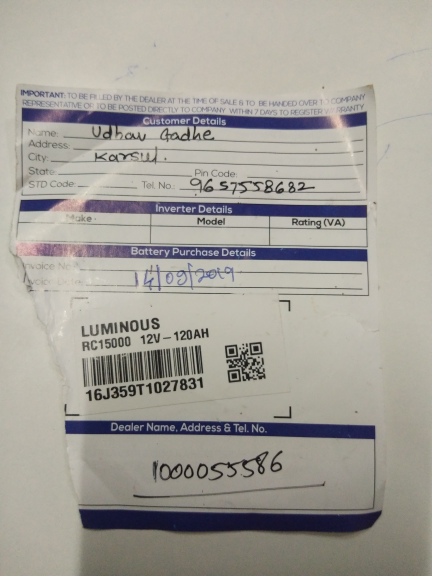 IMPORTANT: TO BE FILLED BY THE DEALER AT THE TIME OF SALE & TO BE HANDED OVER TO COMPANY
REPRESENTATIVE OR TO BE POSTED DIRECTLY TO COMPANY WITHIN 7 DAYS TO REGISTER WARRANTY
Customer Details
Name: Udhav Gadhe
Address:
City: Karsul.
State Pin Code
STD Code Tel. No.: 9657558682
Inverter Details
Make Model Rating (VA)
Battery Purchase Details
Invoice No
Invoice Date 14/09/2019
LUMINOUS
RC15000 12V-120AH
16J359T1027831
Dealer Name, Address & Tel. No.
1000055586